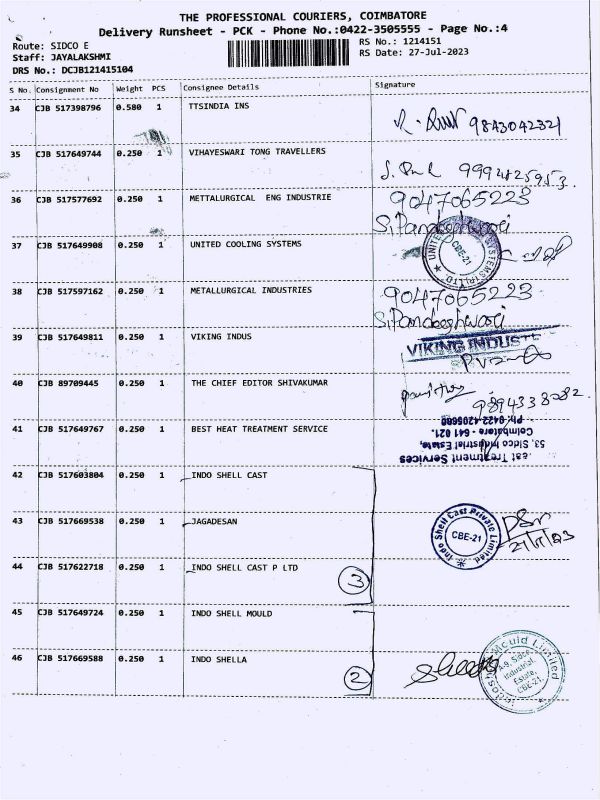 THE PROFESSIONAL COURIERS, COIMBATORE
Delivery Runsheet - PCK - Phone No.:0422-3505555 - Page No.:4
Route: SIDCO E
RS No.: 1214151
Staff: JAYALAKSHMI
RS Date: 27-Jul-2023
DRS No.: DCJB121415104
S No. Consignment No Weight PCS Consignee Details Signature
34 CJB 517398796 0.580 1 TTSINDIA INS
9843042321
35 CJB 517649744 0.250 1 VIHAYESWARI TONG TRAVELLERS
9994825953.
36 CJB 517577692 0.250 1 METTALURGICAL ENG INDUSTRIE
9047065223
S.Pandeeshwari
37 CJB 517649908 0.250 1 UNITED COOLING SYSTEMS
CBE-21
38 CJB 517597162 0.250 1 METALLURGICAL INDUSTRIES
9047065223
S.Pandeeshwari
39 CJB 517649811 0.250 1 VIKING INDUS
VIKING INDUST
40 CJB 89709445 0.250 1 THE CHIEF EDITOR SHIVAKUMAR
9894338082.
41 CJB 517649767 0.250 1 BEST HEAT TREATMENT SERVICE
eat Treatment Services
53, Sidco Industrial Estate,
Coimbatore - 641 021.
Ph: 0422-4205680
42 CJB 517603804 0.250 1 INDO SHELL CAST
43 CJB 517669538 0.250 1 JAGADESAN
Indo Shell Cast Private Limited
CBE-21
44 CJB 517622718 0.250 1 INDO SHELL CAST P LTD
3
45 CJB 517649724 0.250 1 INDO SHELL MOULD
46 CJB 517669588 0.250 1 INDO SHELLA
2
Indoshell Mould Limited
A-9, Sidco
Industrial
Estate,
CBE-21.